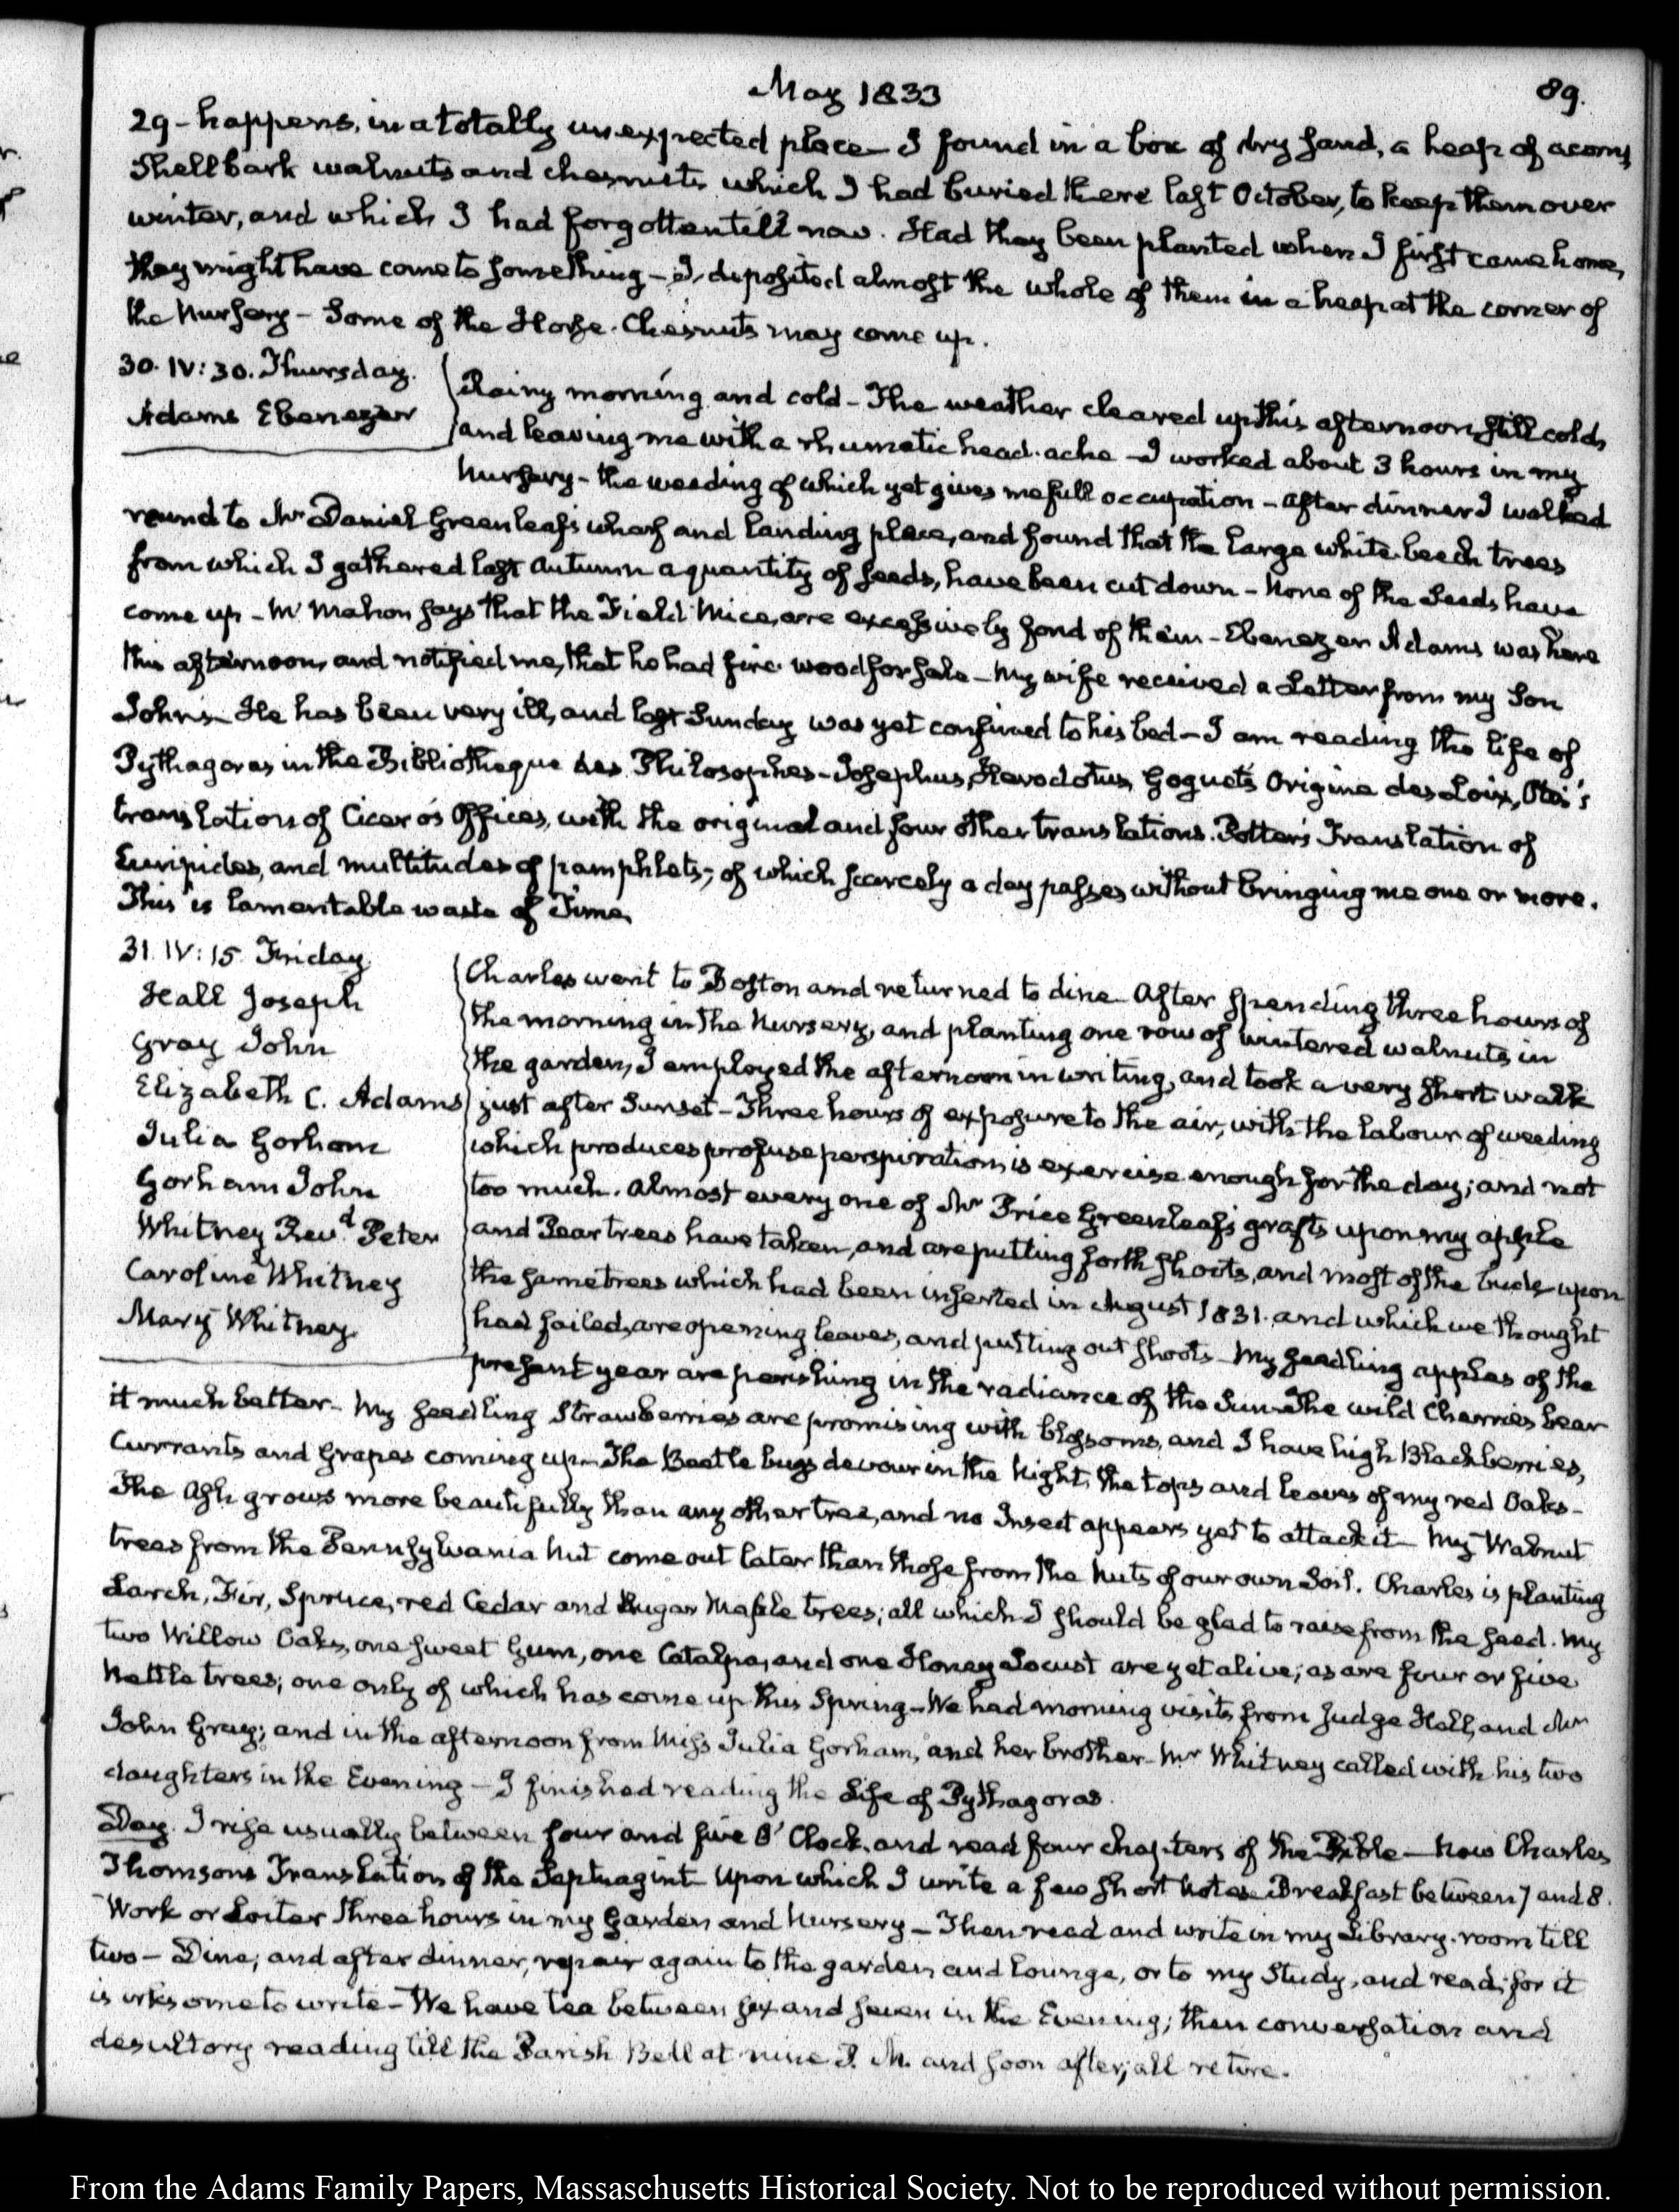 May 1833
89.
29 - happens, in a totally unexpected place - I found in a box of dry sand, a heap of acorns
Shellbark walnuts and chesnuts which I had buried there last October, to keep them over
winter, and which I had forgotten till now. Had they been planted when I first came home,
they might have come to something - I deposited almost the whole of them in a heap at the corner of
the Nursery - Some of the Horse-Chesnuts may come up.
30. IV:30. Thursday.
Adams Ebenezer
Rainy morning and cold - The weather cleared up this afternoon, still cold,
and leaving me with a rhumatic head-ache - I worked about 3 hours in my
Nursery - the weeding of which yet gives me full occupation - after dinner I walked
round to Mr Daniel Greenleaf's wharf and landing place, and found that the large white beech trees
from which I gathered last Autumn a quantity of seeds, have been cut down - None of the Seeds have
come up - McMahon says that the Field Mice, are excessively fond of them - Ebenezer Adams was here
this afternoon, and notified me, that he had fire-wood for sale - My wife received a Letter from my Son
John - He has been very ill, and last Sunday was yet confined to his bed - I am reading the life of
Pythagoras in the Bibliotheque des Philosophes - Josephus, Herodotus, Goguet's Origine des Loix, Otis's
translation of Cicero's Offices, with the original and four other translations. Potter's Translation of
Euripides, and multitudes of pamphlets; of which scarcely a day passes without bringing me one or more.
This is lamentable waste of Time.
31. IV:15. Friday.
Hall Joseph
Gray John
Elizabeth C. Adams
Julia Gorham
Gorham John
Whitney Revd. Peter
Caroline Whitney
Mary Whitney.
Charles went to Boston and returned to dine - After spending three hours of
the morning in the Nursery, and planting one row of wintered walnuts in
the garden, I employed the afternoon in writing, and took a very short walk
just after Sunset - Three hours of exposure to the air, with the labour of weeding
which produces profuse perspiration, is exercise enough for the day; and not
too much. Almost every one of Mr Price Greenleaf's grafts upon my apple
and Pear trees have taken, and are putting forth shoots, and most of the buds upon
the same trees which had been inserted in August 1831. and which we thought
had failed, are opening leaves, and putting out shoots - My seedling apples of the
present year are perishing in the radiance of the Sun - The wild Cherries bear
it much better - My seedling Strawberries are promising with blossoms, and I have high Blackberries,
Currants and Grapes coming up - The Beetle bugs devour in the Night, the tops and leaves of my red Oaks -
The Ash grows more beautifully than any other tree, and no Insect appears yet to attack it - My Walnut
trees from the Pennsylvania Nut come out later than those from the Nuts of our own Soil. Charles is planting
Larch, Fir, Spruce, red Cedar and Sugar Maple trees; all which I should be glad to raise from the seed. My
two Willow Oaks, one sweet Gum, one Catalpa, and one Honey Locust are yet alive; as are four or five
Nettle trees; one only of which has come up this Spring - We had morning visits from Judge Hall, and Mr
John Gray; and in the afternoon from Miss Julia Gorham, and her brother - Mr Whitney called with his two
daughters in the Evening - I finished reading the Life of Pythagoras.
Day. I rise usually between four and five O'Clock, and read four chapters of the Bible - Now Charles
Thomsons Translation of the Septuagint Upon which I write a few short Notes - Breakfast between 7 and 8.
Work or Loiter three hours in my Garden and Nursery - Then read and write in my Library-room till
two - Dine; and after dinner, repair again to the garden and lounge, or to my Study, and read; for it
is irksome to write - We have tea between six and seven in the Evening; then conversation and
desultory reading till the Parish Bell at nine P.M. and soon after, all retire.
From the Adams Family Papers, Massachusetts Historical Society. Not to be reproduced without permission.